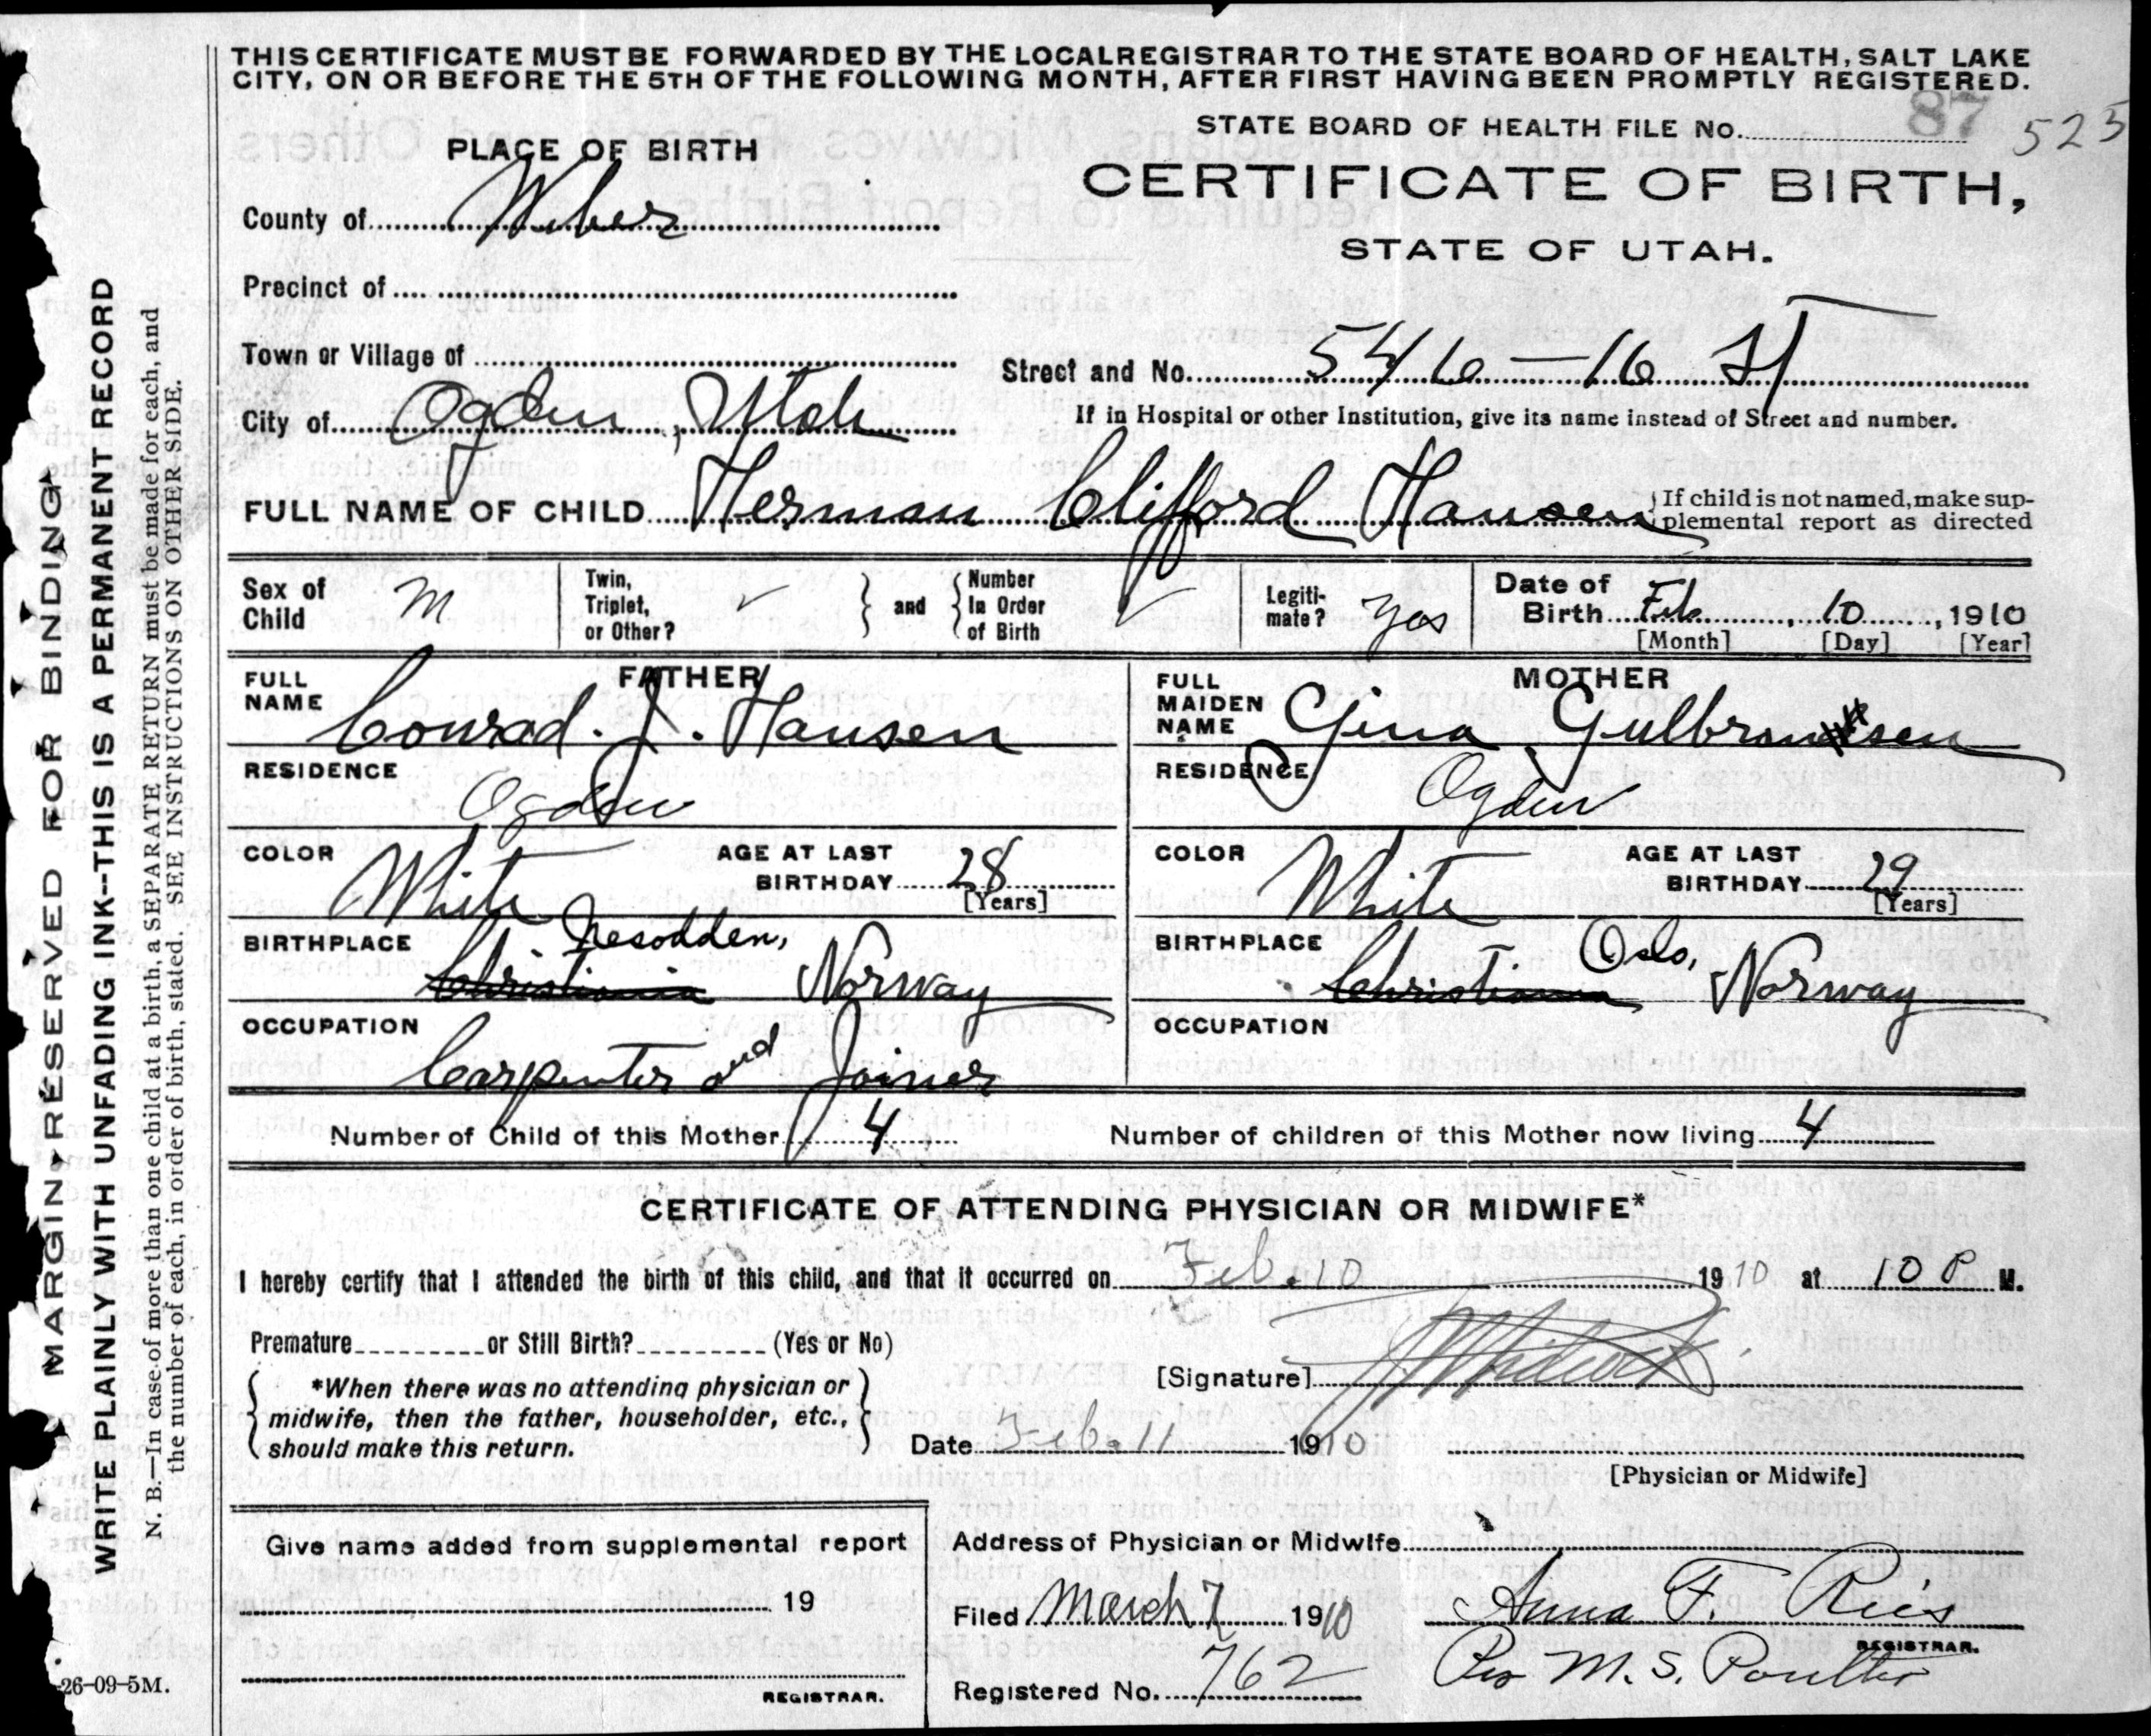 THIS CERTIFICATE MUST BE FORWARDED BY THE LOCAL REGISTRAR TO THE STATE BOARD OF HEALTH, SALT LAKE
CITY, ON OR BEFORE THE 5TH OF THE FOLLOWING MONTH, AFTER FIRST HAVING BEEN PROMPTLY REGISTERED.
STATE BOARD OF HEALTH FILE No. 87 525
PLACE OF BIRTH
CERTIFICATE OF BIRTH,
STATE OF UTAH.
County of Weber
Precinct of
Town or Village of
Street and No. 546 - 16 St
City of Ogden, Utah
If in Hospital or other Institution, give its name instead of Street and number.
FULL NAME OF CHILD Herman Clifford Hansen
If child is not named, make sup-
plemental report as directed
Sex of Child M
Twin, Triplet, or Other? ✓
and
Number In Order of Birth ✓
Legiti-mate? Yes
Date of Birth Feb. 10, 1910
[Month] [Day] [Year]
FATHER
FULL NAME Conrad. J. Hansen
RESIDENCE Ogden
COLOR White
AGE AT LAST BIRTHDAY 28
[Years]
BIRTHPLACE Christiania Nesodden, Norway
OCCUPATION Carpenter and Joiner
MOTHER
FULL MAIDEN NAME Gina Gulbransen
RESIDENCE Ogden
COLOR White
AGE AT LAST BIRTHDAY 29
[Years]
BIRTHPLACE Christiania Oslo, Norway
OCCUPATION
Number of Child of this Mother 4
Number of children of this Mother now living 4
CERTIFICATE OF ATTENDING PHYSICIAN OR MIDWIFE*
I hereby certify that I attended the birth of this child, and that it occurred on Feb. 10 1910 at 10 P M.
Premature or Still Birth? (Yes or No)
[Signature]
*When there was no attending physician or
midwife, then the father, householder, etc.,
should make this return.
Date Feb. 11 1910
[Physician or Midwife]
Give name added from supplemental report
19
REGISTRAR.
Address of Physician or Midwife
Filed March 7 1910
Anna F. Ries
REGISTRAR.
Registered No. 762
Per M. S. Poulter
26-09-5M.
MARGIN RESERVED FOR BINDING
WRITE PLAINLY WITH UNFADING INK--THIS IS A PERMANENT RECORD
N. B.—In case of more than one child at a birth, a SEPARATE RETURN must be made for each, and
the number of each, in order of birth, stated. SEE INSTRUCTIONS ON OTHER SIDE.